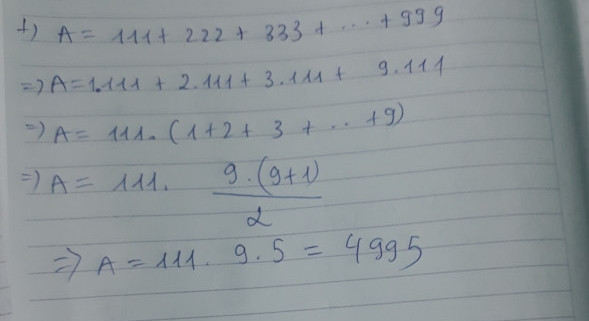 +) A = 111 + 222 + 333 + ... + 999
=> A = 1.111 + 2.111 + 3.111 + 9.111
=> A = 111. (1+2+3+..+9)
=> A = 111. \frac{9.(9+1)}{2}
=> A = 111. 9.5 = 4995